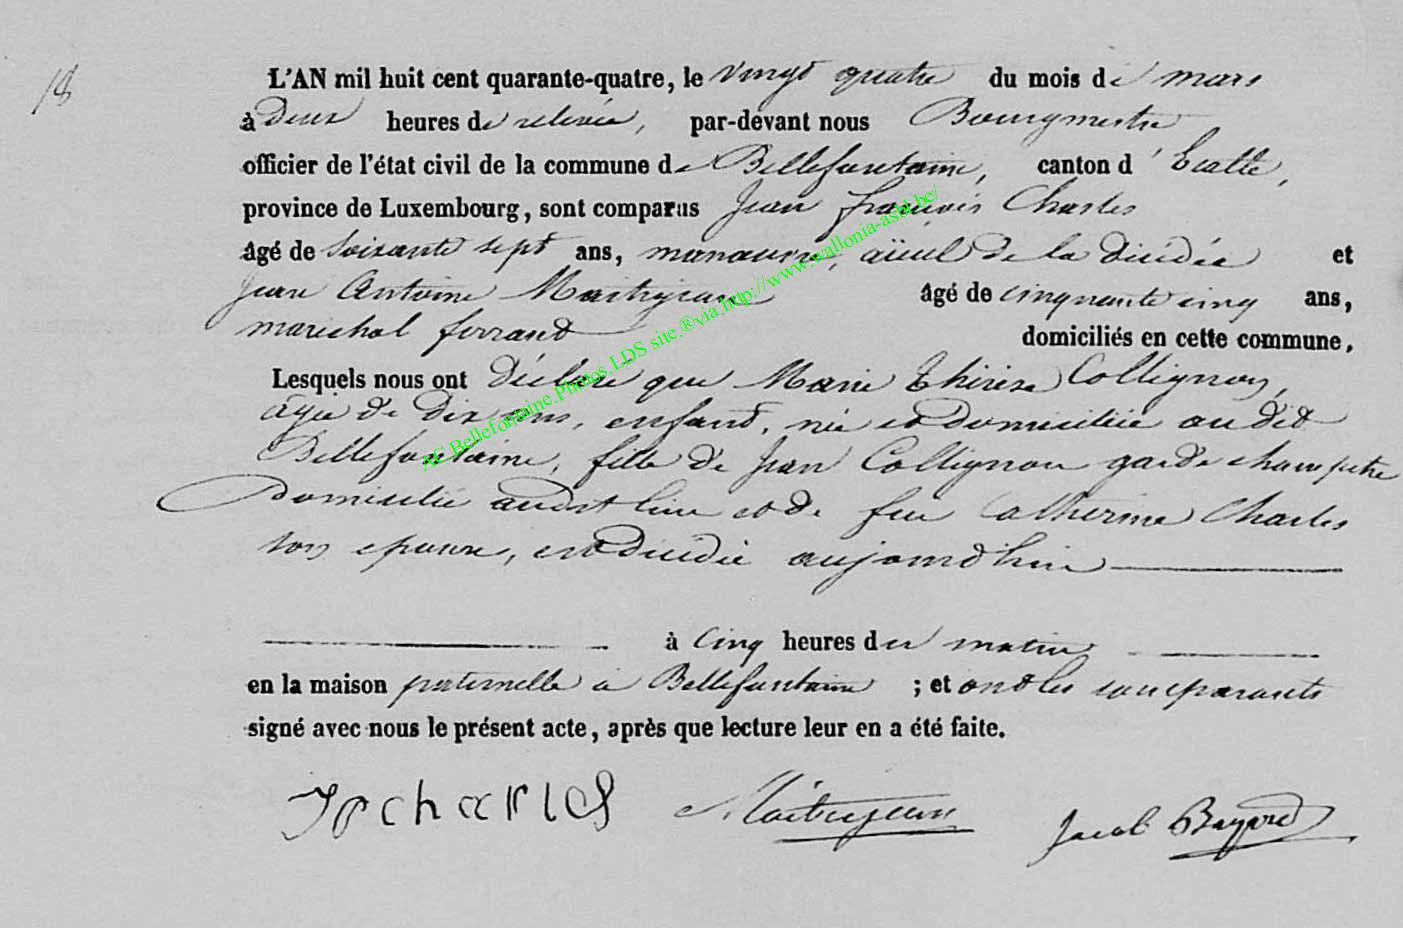 18
L'AN mil huit cent quarante-quatre, le vingt quatre du mois de mars
à deux heures de relevée, par-devant nous Bourgmestre
officier de l'état civil de la commune de Bellefontaine, canton d'Etalle,
province de Luxembourg, sont comparus Jean françois Charles
âgé de soixante sept ans, manœuvre, aïeul de la décédée et
Jean Antoine Maitrejean âgé de cinquante cinq ans,
marechal ferrant domiciliés en cette commune.
Lesquels nous ont déclaré que Marie Thérèse Collignon
agée de dix ans, enfant, née et domiciliée au dit
Bellefontaine, fille de Jean Collignon garde champetre
domicilié audit lieu et de feu Catherine Charles
son epouse, est décédée aujourd'hui
à cinq heures du matin
en la maison paternelle à Bellefontaine ; et ont les comparants
signé avec nous le présent acte, après que lecture leur en a été faite.
JFcharles Maitrejean Jacob Bayard
AC Bellefontaine.Photos.LDS site.®via.http://www.wallonia-asbl.be/